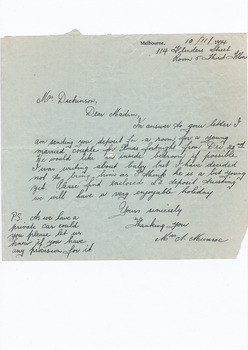 Melbourne,
10/11/1944
114 Flinders Street
Room 5 Third Floor
Mrs Dickinson,
Dear Madam,
In answer to your letter I
am sending you deposit for a room for a young
married couple for Xmas fortnight from Dec 22nd
would like an inside bedroom if possible
I was writing about baby but I have decided
not to bring him as I think he is a bit young
yet. Please find enclosed £2 deposit trusting
we will have a very enjoyable holiday
Yours sincerely
Thanking you
Mrs A. Munroe
P.S. As we have a
private car could
you please let us
know if you have
any provision for it